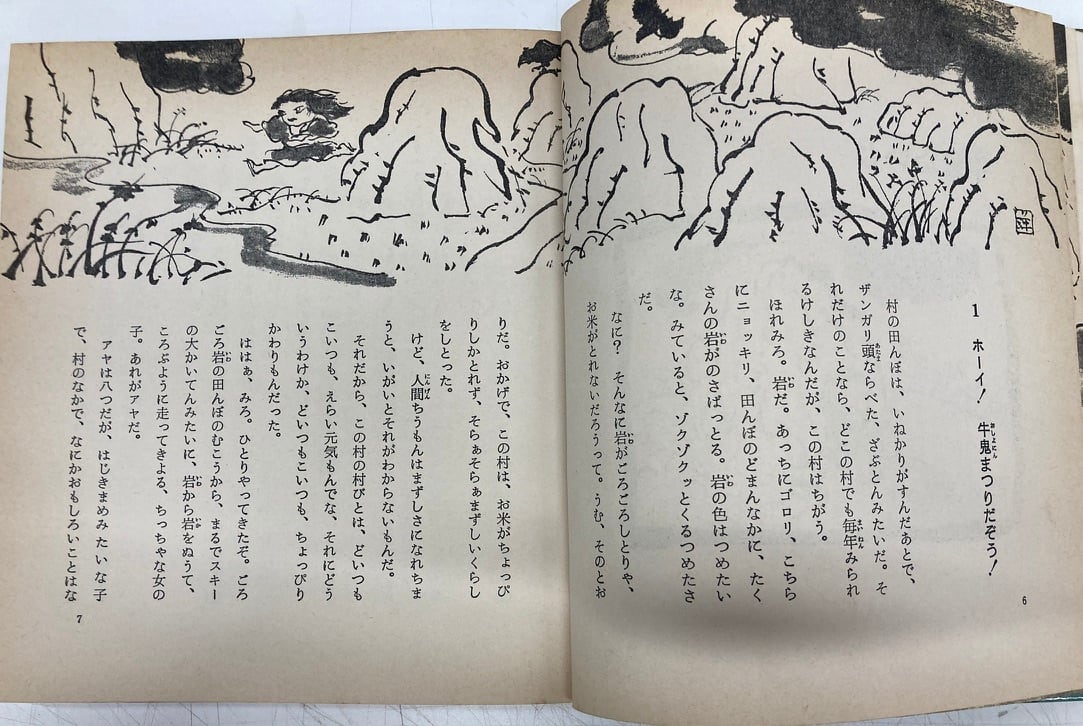 1 ホーイ! 牛鬼まつりだぞう!
村の田んぼは、いねかりがすんだあとで、
ザンガリ頭ならべた、ざぶとんみたいだ。そ
れだけのことなら、どこの村でも毎年みられ
るけしきなんだが、この村はちがう。
ほれみろ。岩だ。あっちにゴロリ、こちら
にニョッキリ、田んぼのどまんなかに、たく
さんの岩がのさばっとる。岩の色はつめたい
な。みていると、ゾクゾクッとくるつめたさ
だ。
なに? そんなに岩がごろごろしとりゃ、
お米がとれないだろうって。うむ、そのとお
6
りだ。おかげで、この村は、お米がちょっぴ
りしかとれず、そらぁそらぁまずしいくらし
をしとった。
けど、人間ちうもんはまずしさになれちま
うと、いがいとそれがわからないもんだ。
それだから、この村の村びとは、どいつも
こいつも、えらい元気もんでな、それにどう
いうわけか、どいつもこいつも、ちょっぴり
かわりもんだった。
ははぁ、みろ。ひとりやってきたぞ。ごろ
ごろ岩の田んぼのむこうから、まるでスキー
の大かいてんみたいに、岩から岩をぬうて、
ころぶように走ってきよる、ちっちゃな女の
子。あれがアヤだ。
アヤは八つだが、はじきまめみたいな子
で、村のなかで、なにかおもしろいことはな
7